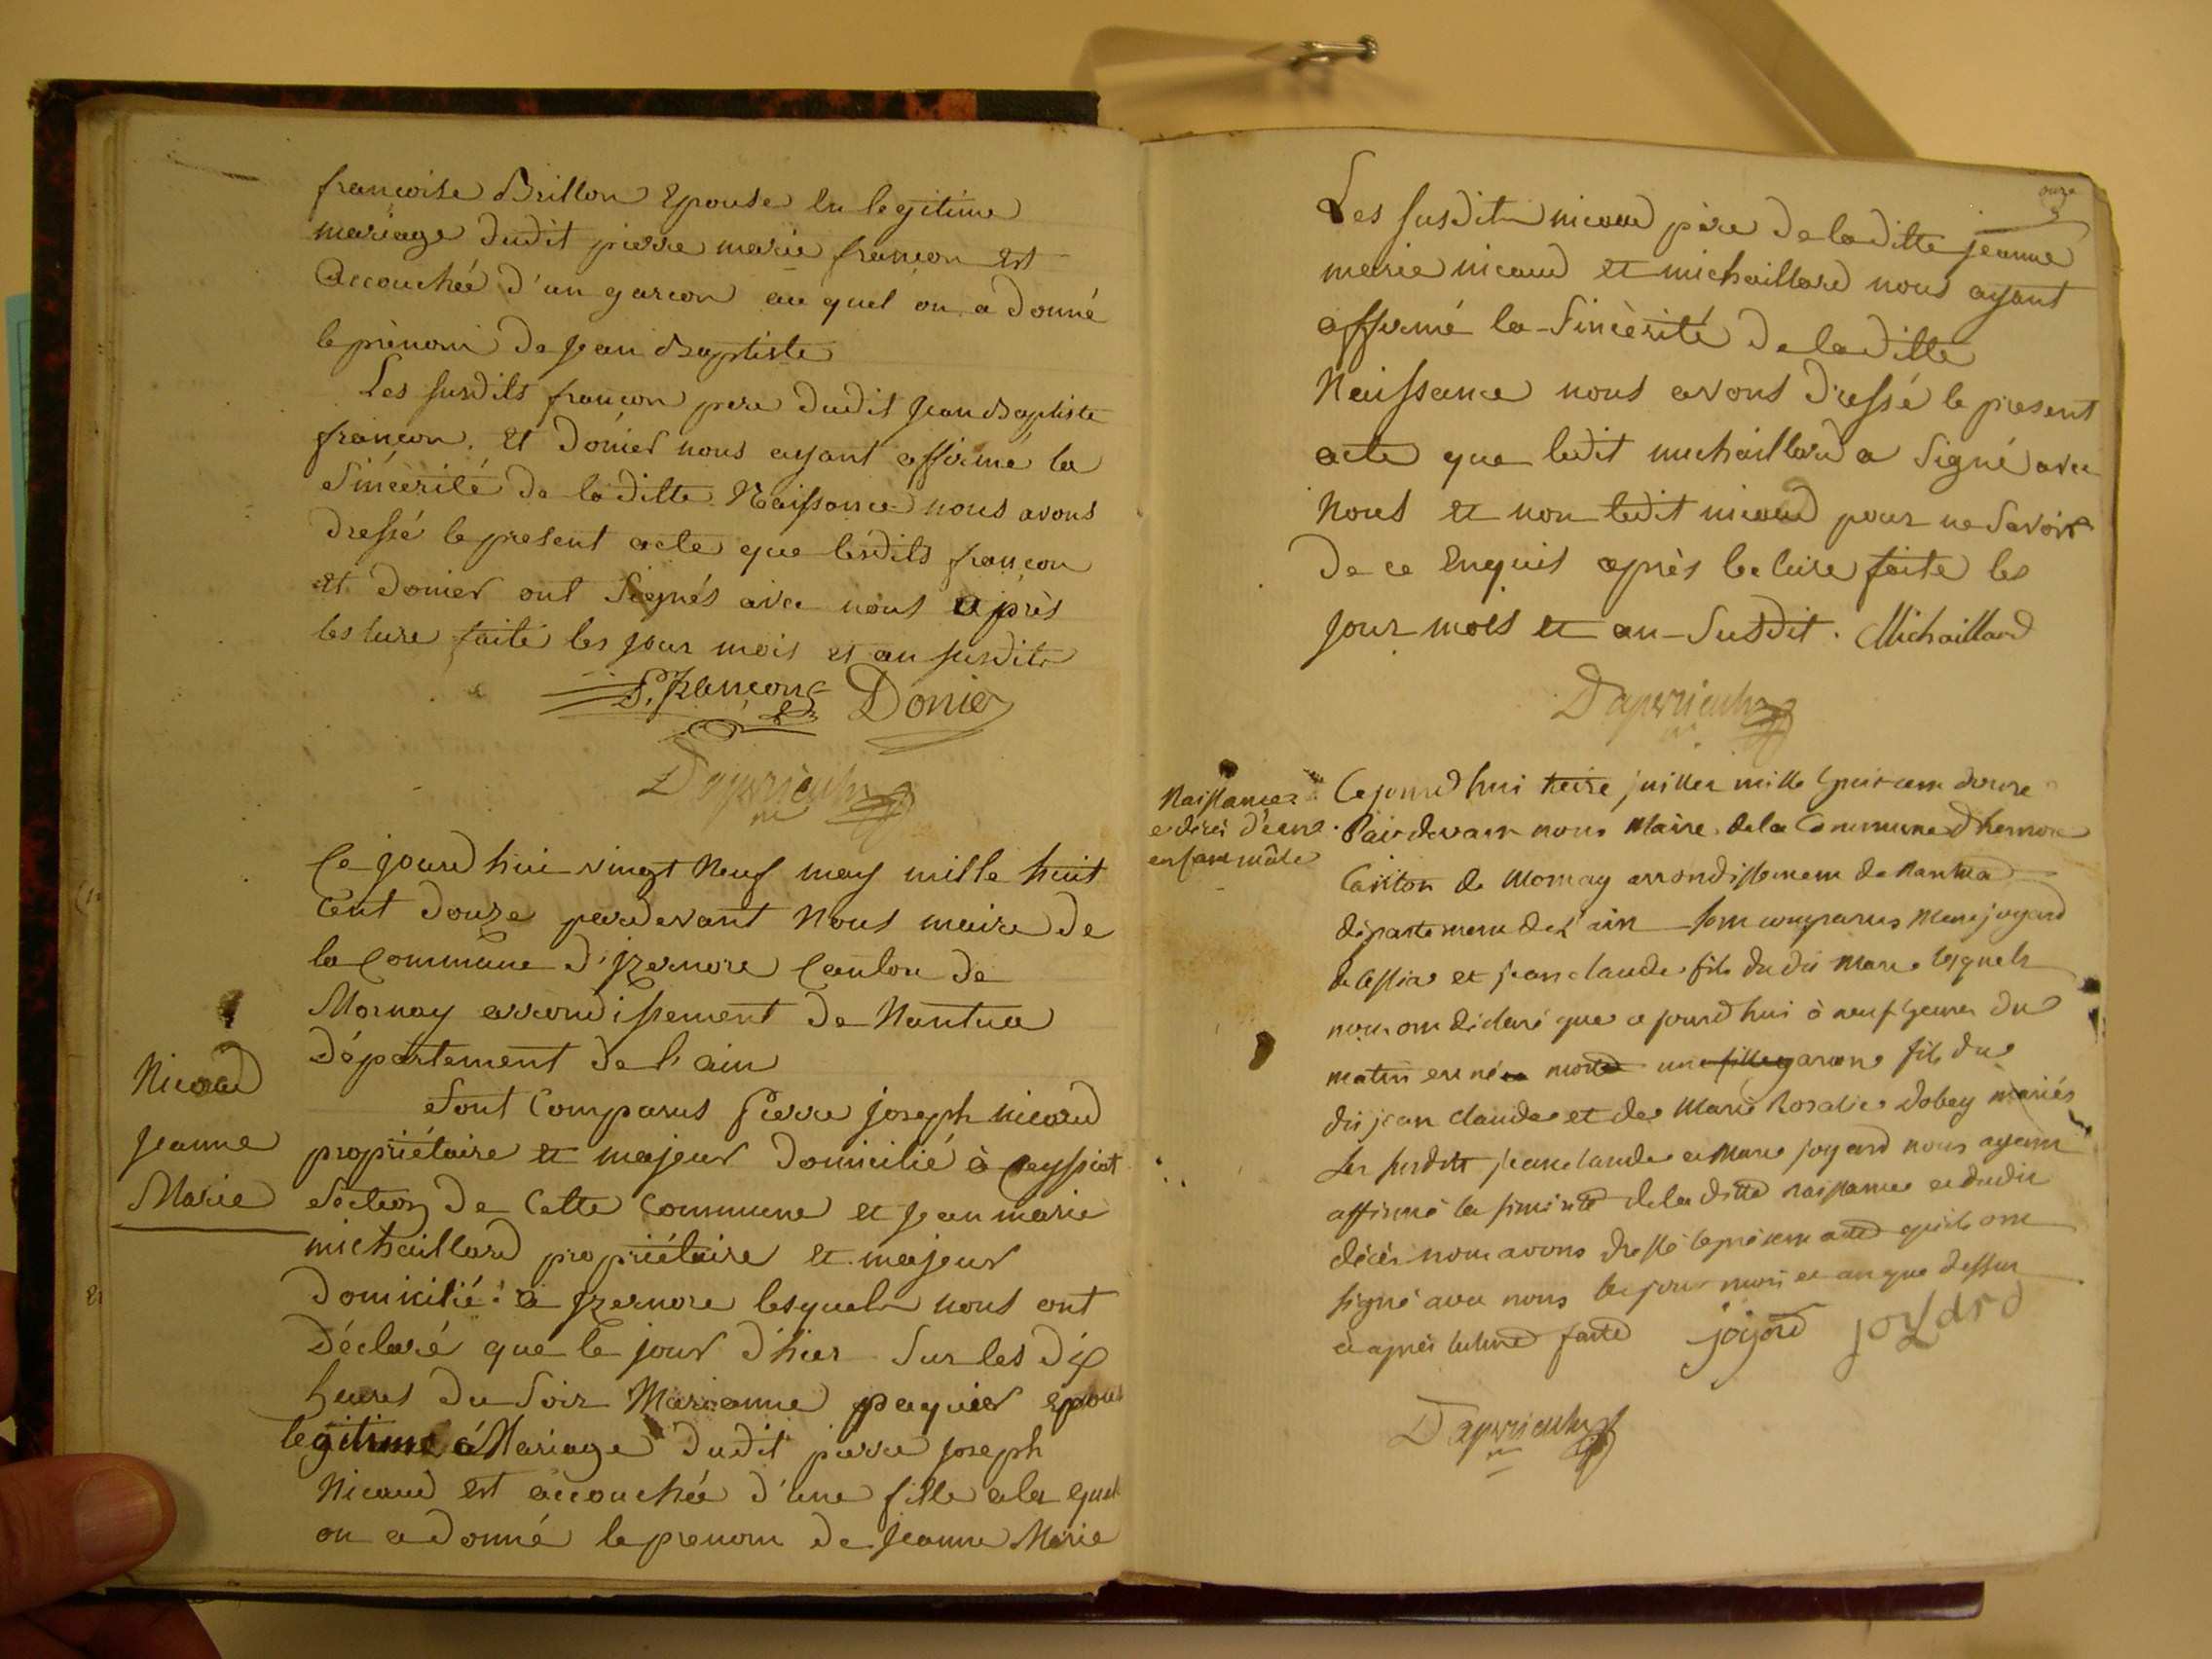 françoise Brillon Epouse En legitime
mariage dudit pierre marie françon Est
accouchée d'un garcon au quel on a donné
le prènom de Jean Baptiste
Les susdits françon pere dudit Jean Baptiste
françon. Et Donier nous ayant affirmé la
Sincèrité de laditte Naissance nous avons
dressé le present acte que lesdits françon
et Donier ont Signés avec nous après
lecture faite les jour mois et an susdit
P. françon Donier
Ce jourd'hui vingt Neuf may mille huit
Cent Douze pardevant Nous maire de
la Commune d'jzernore Canton de
Mornay arrondissement de Nantua
Département de l'ain
Nicoud
Jeanne
Marie
Sont Comparus Pierre joseph nicoud
propriétaire et majeur Domicilié à Ceyssiat
Section de Cette Commune et Jean marie
michaillard propriétaire et majeur
Domicilié à jzernore lesquels nous ont
Déclaré que le jour d'hier Sur les dix
heures du Soir Marianne paquier epous
legitime Mariage dudit pierre joseph
Nicoud est accouchée d'une fille a la quel
on a donné le prenom de Jeanne Marie
onze
Les susdit nicoud père de laditte jeanne
marie nicoud et michaillard nous ayant
affirmé la Sincèrité de laditte
Naissance nous avons dressé le present
acte que ledit michaillard a Signé avec
Nous et non ledit nicoud pour ne Savoir
De ce Enquis après lecture faite les
Jour mois et an Susdit. Michaillard
Naissance
et décés d'un
enfant mâle
Cejourd'hui treize juillet mille huit cent douze
Pardevant nous Maire de la Commune d'hernore
Canton de Mornay arrondissement de Nantua
département de l'ain sont comparus Marie joyard
de et jean claude fils du dit Marie lesquels
nous ont déclaré que ce jourd'hui à neuf heures du
matin est né mort une fille garçon fils du
dit jean claude et de Marie Rosalie Dobey mariés
Les susdits jean claude et Marie joyard nous ayant
affirmé la sincérité de la ditte naissance et dudit
décès nous avons dressé le présent acte qu'ils ont
signé avec nous les jour mois et an que dessus
et après lecture faite joyard joyard